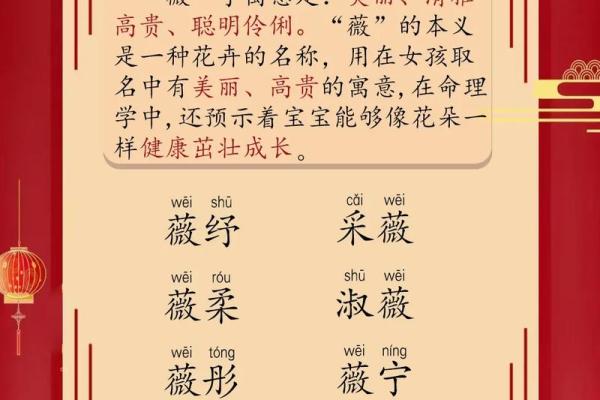 高贵、聪明伶俐。“薇”的本义
是一种花卉的名称，用在女孩取
名中有美丽、高贵的寓意,在命理
学中,还预示着宝宝能够像花朵一
样健康茁壮成长。
wēi shū
薇纾
cǎi wēi
采薇
wēi róu
薇柔
shū wēi
淑薇
wēi tóng
薇彤
wēi níng
薇宁